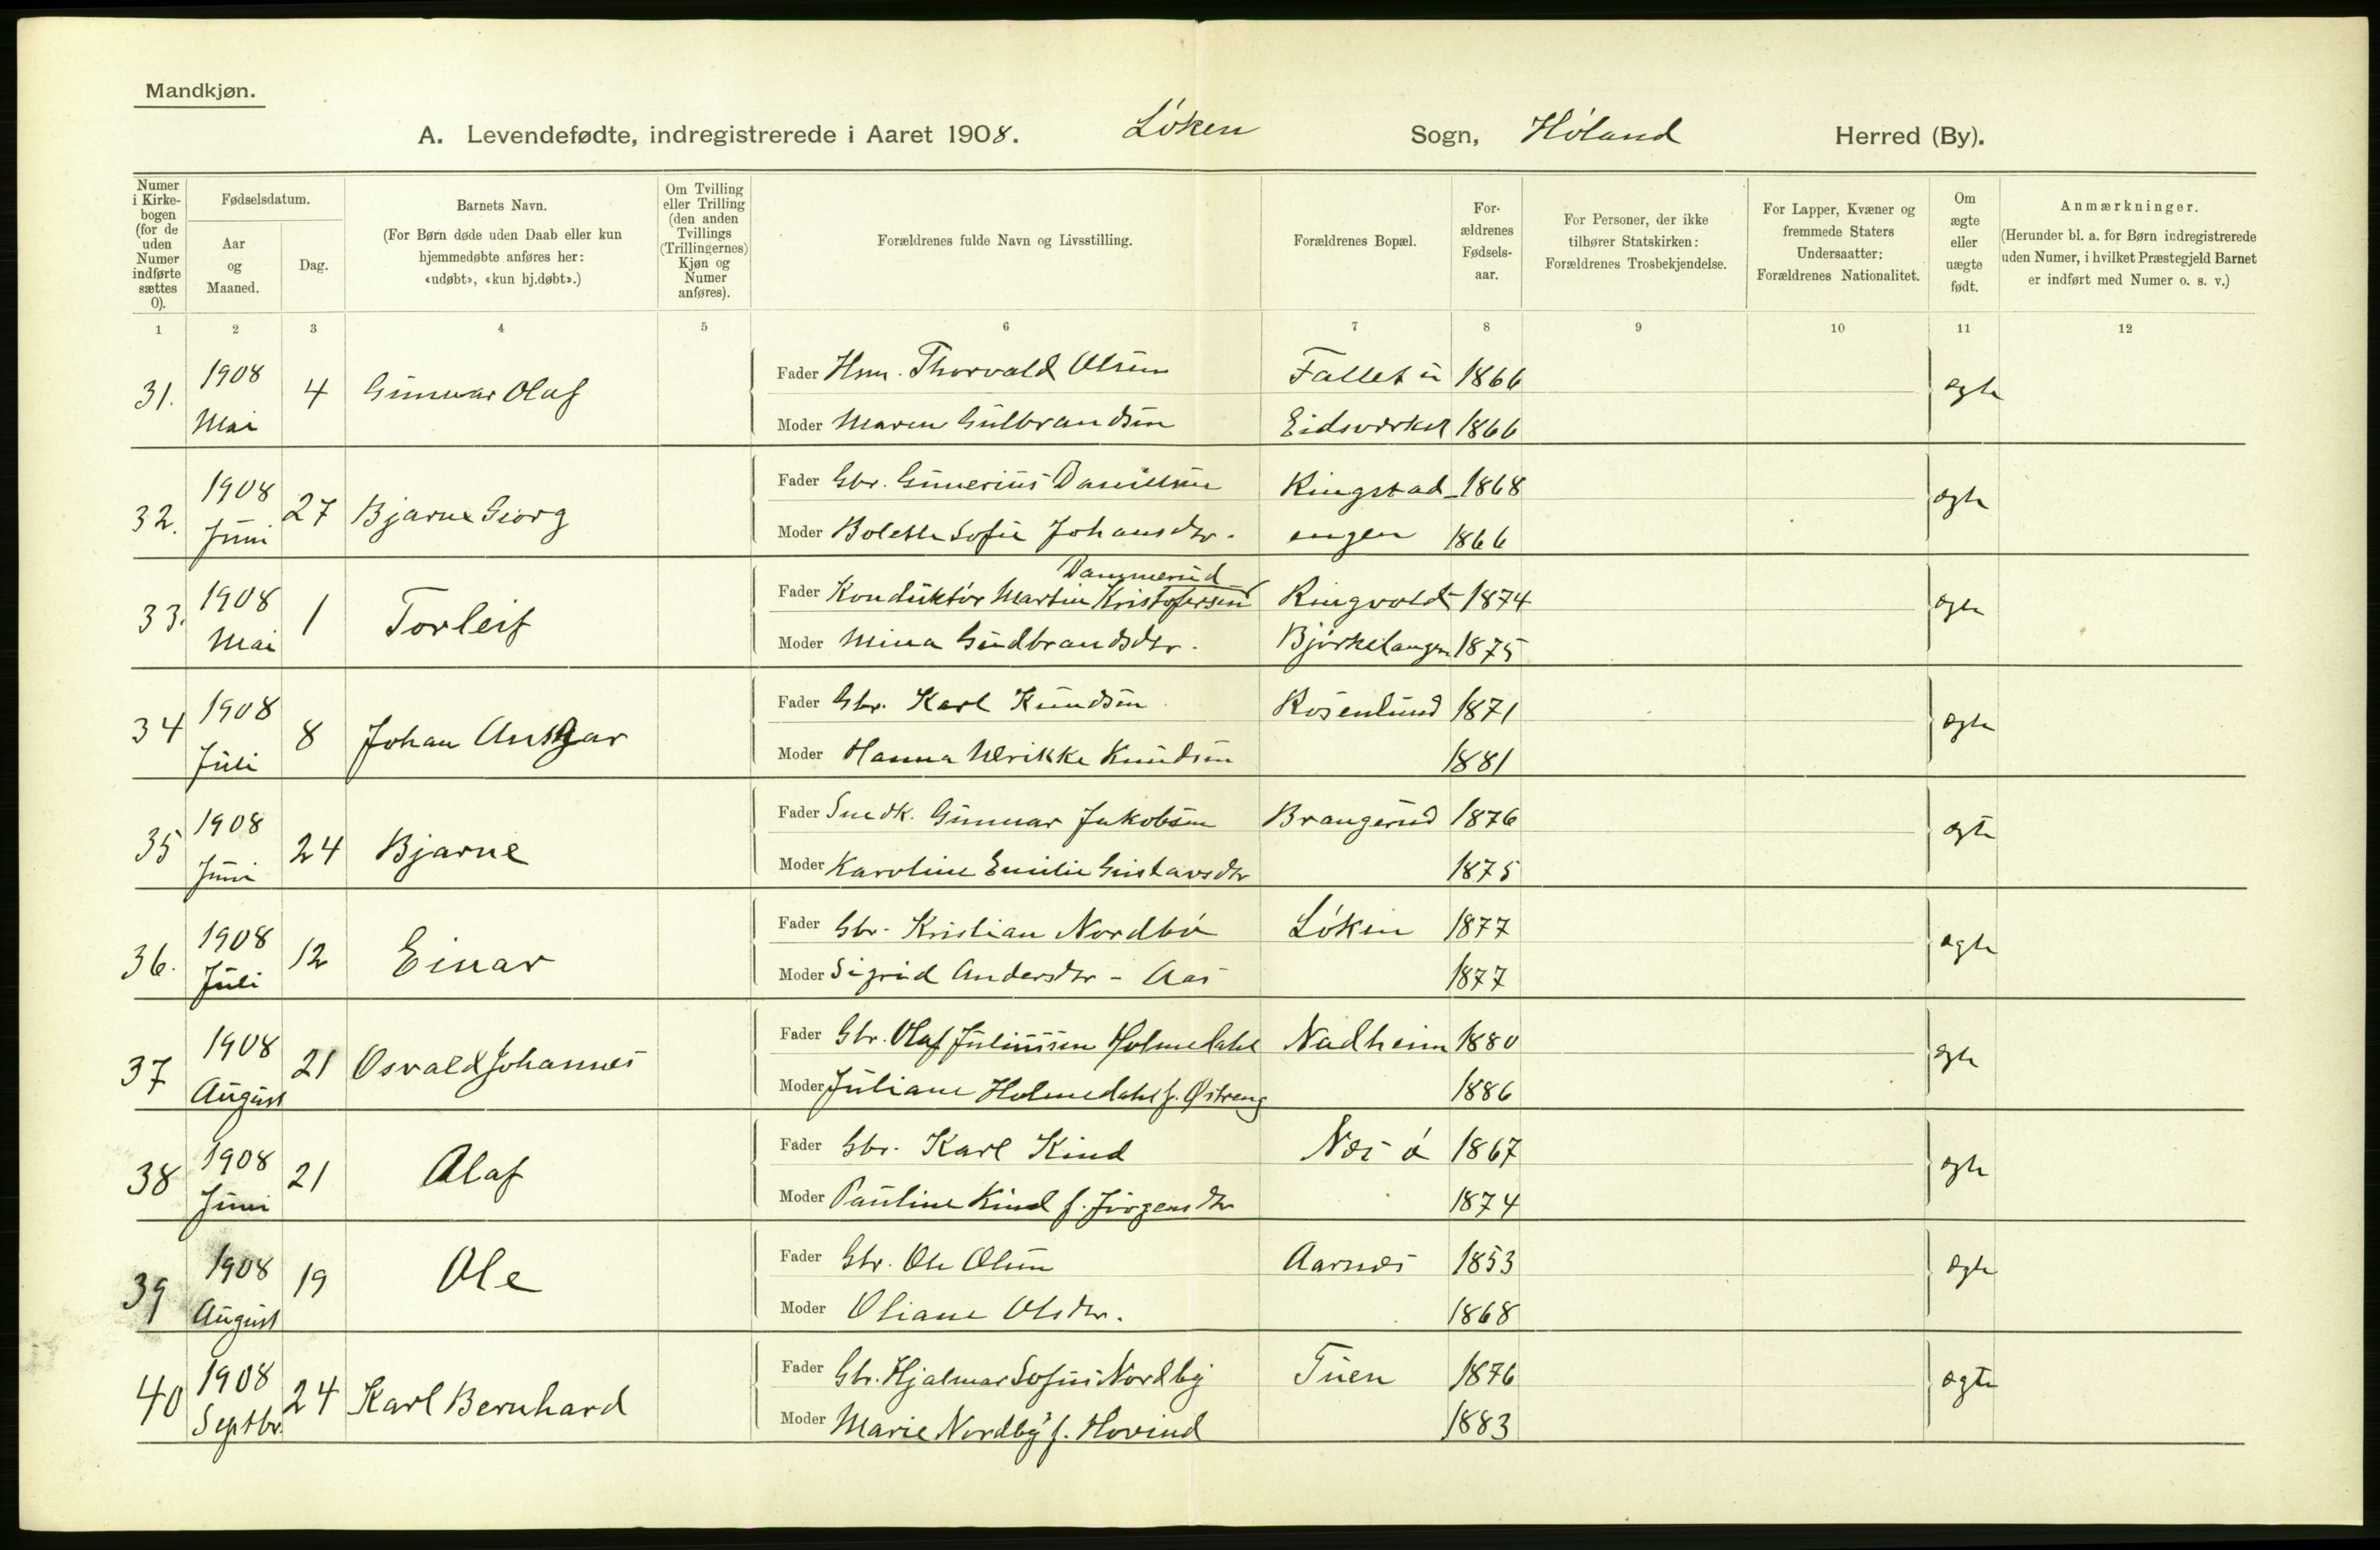 Mandkjøn.
A. Levendefødte, indregistrerede i Aaret 1908. Løken Sogn, Høland Herred (By).
Numer i Kirke-bogen (for de uden Numer indførte sættes 0).
Fødselsdatum.
Aar og Maaned.
Dag.
Barnets Navn.
(For Børn døde uden Daab eller kun hjemmedøbte anføres her: «udøbt», «kun hj.døbt».)
Om Tvilling eller Trilling (den anden Tvillings (Trillingernes) Kjøn og Numer anføres).
Forældrenes fulde Navn og Livsstilling.
Forældrenes Bopæl.
For-ældrenes Fødsels-aar.
For Personer, der ikke tilhører Statskirken: Forældrenes Trosbekjendelse.
For Lapper, Kvæner og fremmede Staters Undersaatter: Forældrenes Nationalitet.
Om ægte eller uægte født.
Anmærkninger.
(Herunder bl. a. for Børn indregistrerede uden Numer, i hvilket Præstegjeld Barnet er indført med Numer o. s. v.)
1 2 3 4 5 6 7 8 9 10 11 12
31. 1908 Mai 4 Gunnar Olaf
Fader Hsm. Thorvald Olsen Fallet u 1866 ægte
Moder Maren Gulbrandsen Eidsverket 1866
32. 1908 Juni 27 Bjarne Georg
Fader Gbr. Gunerius Danielsen Kingstad- 1868 ægte
Moder Bolette Sofie Johansdtr. engen 1866
33. 1908 Mai 1 Torleif
Dammerud
Fader Konduktør Martin Kristofersen Ringvold 1874 ægte
Moder Mina Gudbrandsdtr. Bjørkelangen 1875
34 1908 Juli 8 Johan Ansgar
Fader Gbr. Karl Knudsen Rosenlund 1871 ægte
Moder Hanna Ulrikke Knudsen 1881
35 1908 Juni 24 Bjarne
Fader Snedk. Gunnar Jakobsen Brangerud 1876 ægte
Moder Karoline Emilie Gustavsdtr 1875
36. 1908 Juli 12 Einar
Fader Gbr. Kristian Nordbø Løken 1877 ægte
Moder Sigrid Andersdtr - Aas 1877
37 1908 August 21 Osvald Johannes
Fader Gbr. Olaf Juliussen Holmedahl Nadheim 1880 ægte
Moder Juliane Holmedahl f. Østreng 1886
38 1908 Juni 21 Olaf
Fader Gbr. Karl Kind Næs ø 1867 ægte
Moder Pauline Kind f. Jørgensdtr 1874
39 1908 August 19 Ole
Fader Gbr. Ole Olsen Aarnæs 1853 ægte
Moder Oliane Olsdtr. 1868
40 1908 Septbr. 24 Karl Bernhard
Fader Gbr. Hjalmar Sofus Nordby Tuen 1876 ægte
Moder Marie Nordby f. Hovind 1883